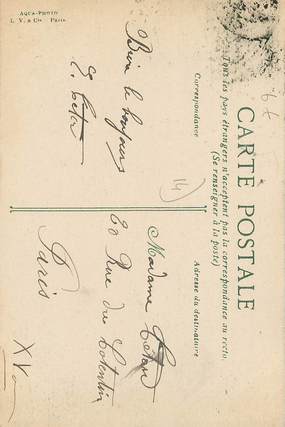 AQUA-PHOTO
L. V. & Cie - Paris
CARTE POSTALE
Tous les pays étrangers n'acceptent pas la correspondance au recto
(Se renseigner à la poste)
Correspondance
Adresse du destinataire
E.
Madame
20 Rue du Cotentin
Paris
XV